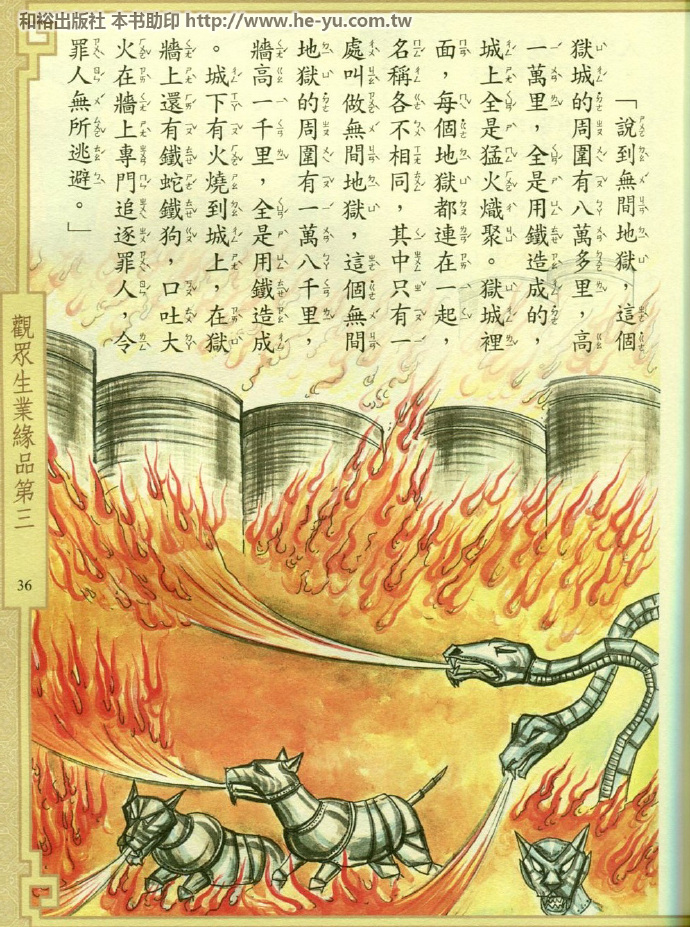 和裕出版社 本书助印 http://www.he-yu.com.tw
「說到無間地獄，這個
獄城的周圍有八萬多里，高
一萬里，全是用鐵造成的，
城上全是猛火熾聚。獄城裡
面，每個地獄都連在一起，
名稱各不相同，其中只有一
處叫做無間地獄，這個無間
地獄的周圍有一萬八千里，
牆高一千里，全是用鐵造成
。城下有火燒到城上，在獄
牆上還有鐵蛇鐵狗，口吐大
火在牆上專門追逐罪人，令
罪人無所逃避。」
觀眾生業緣品第三
36